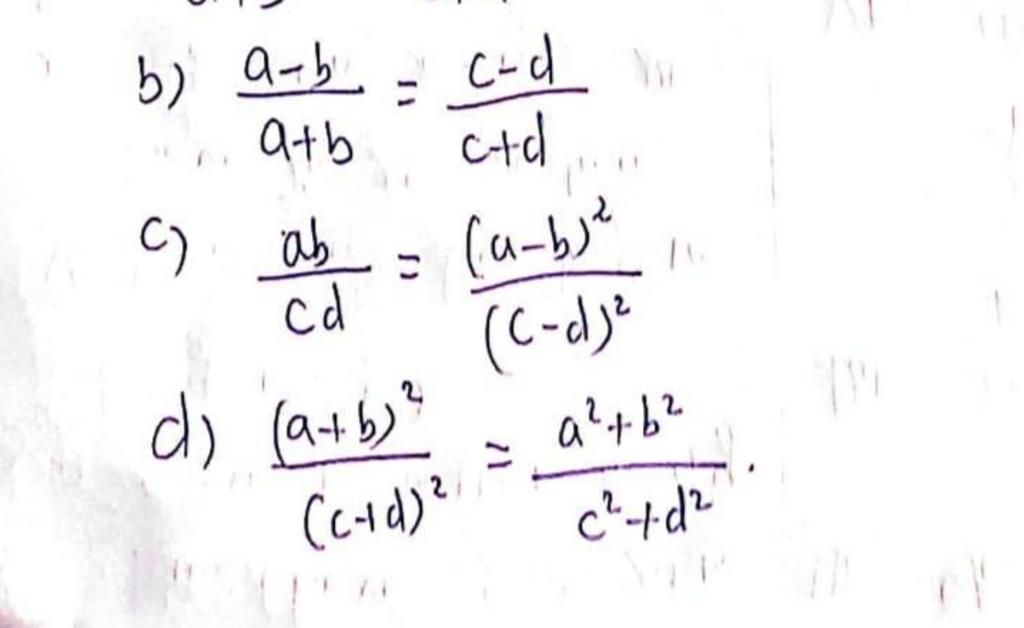 b) (a-b)/(a+b) = (c-d)/(c+d)
c) ab/cd = (a-b)²/(c-d)²
d) (a+b)²/(c+d)² = (a²+b²)/(c²+d²).